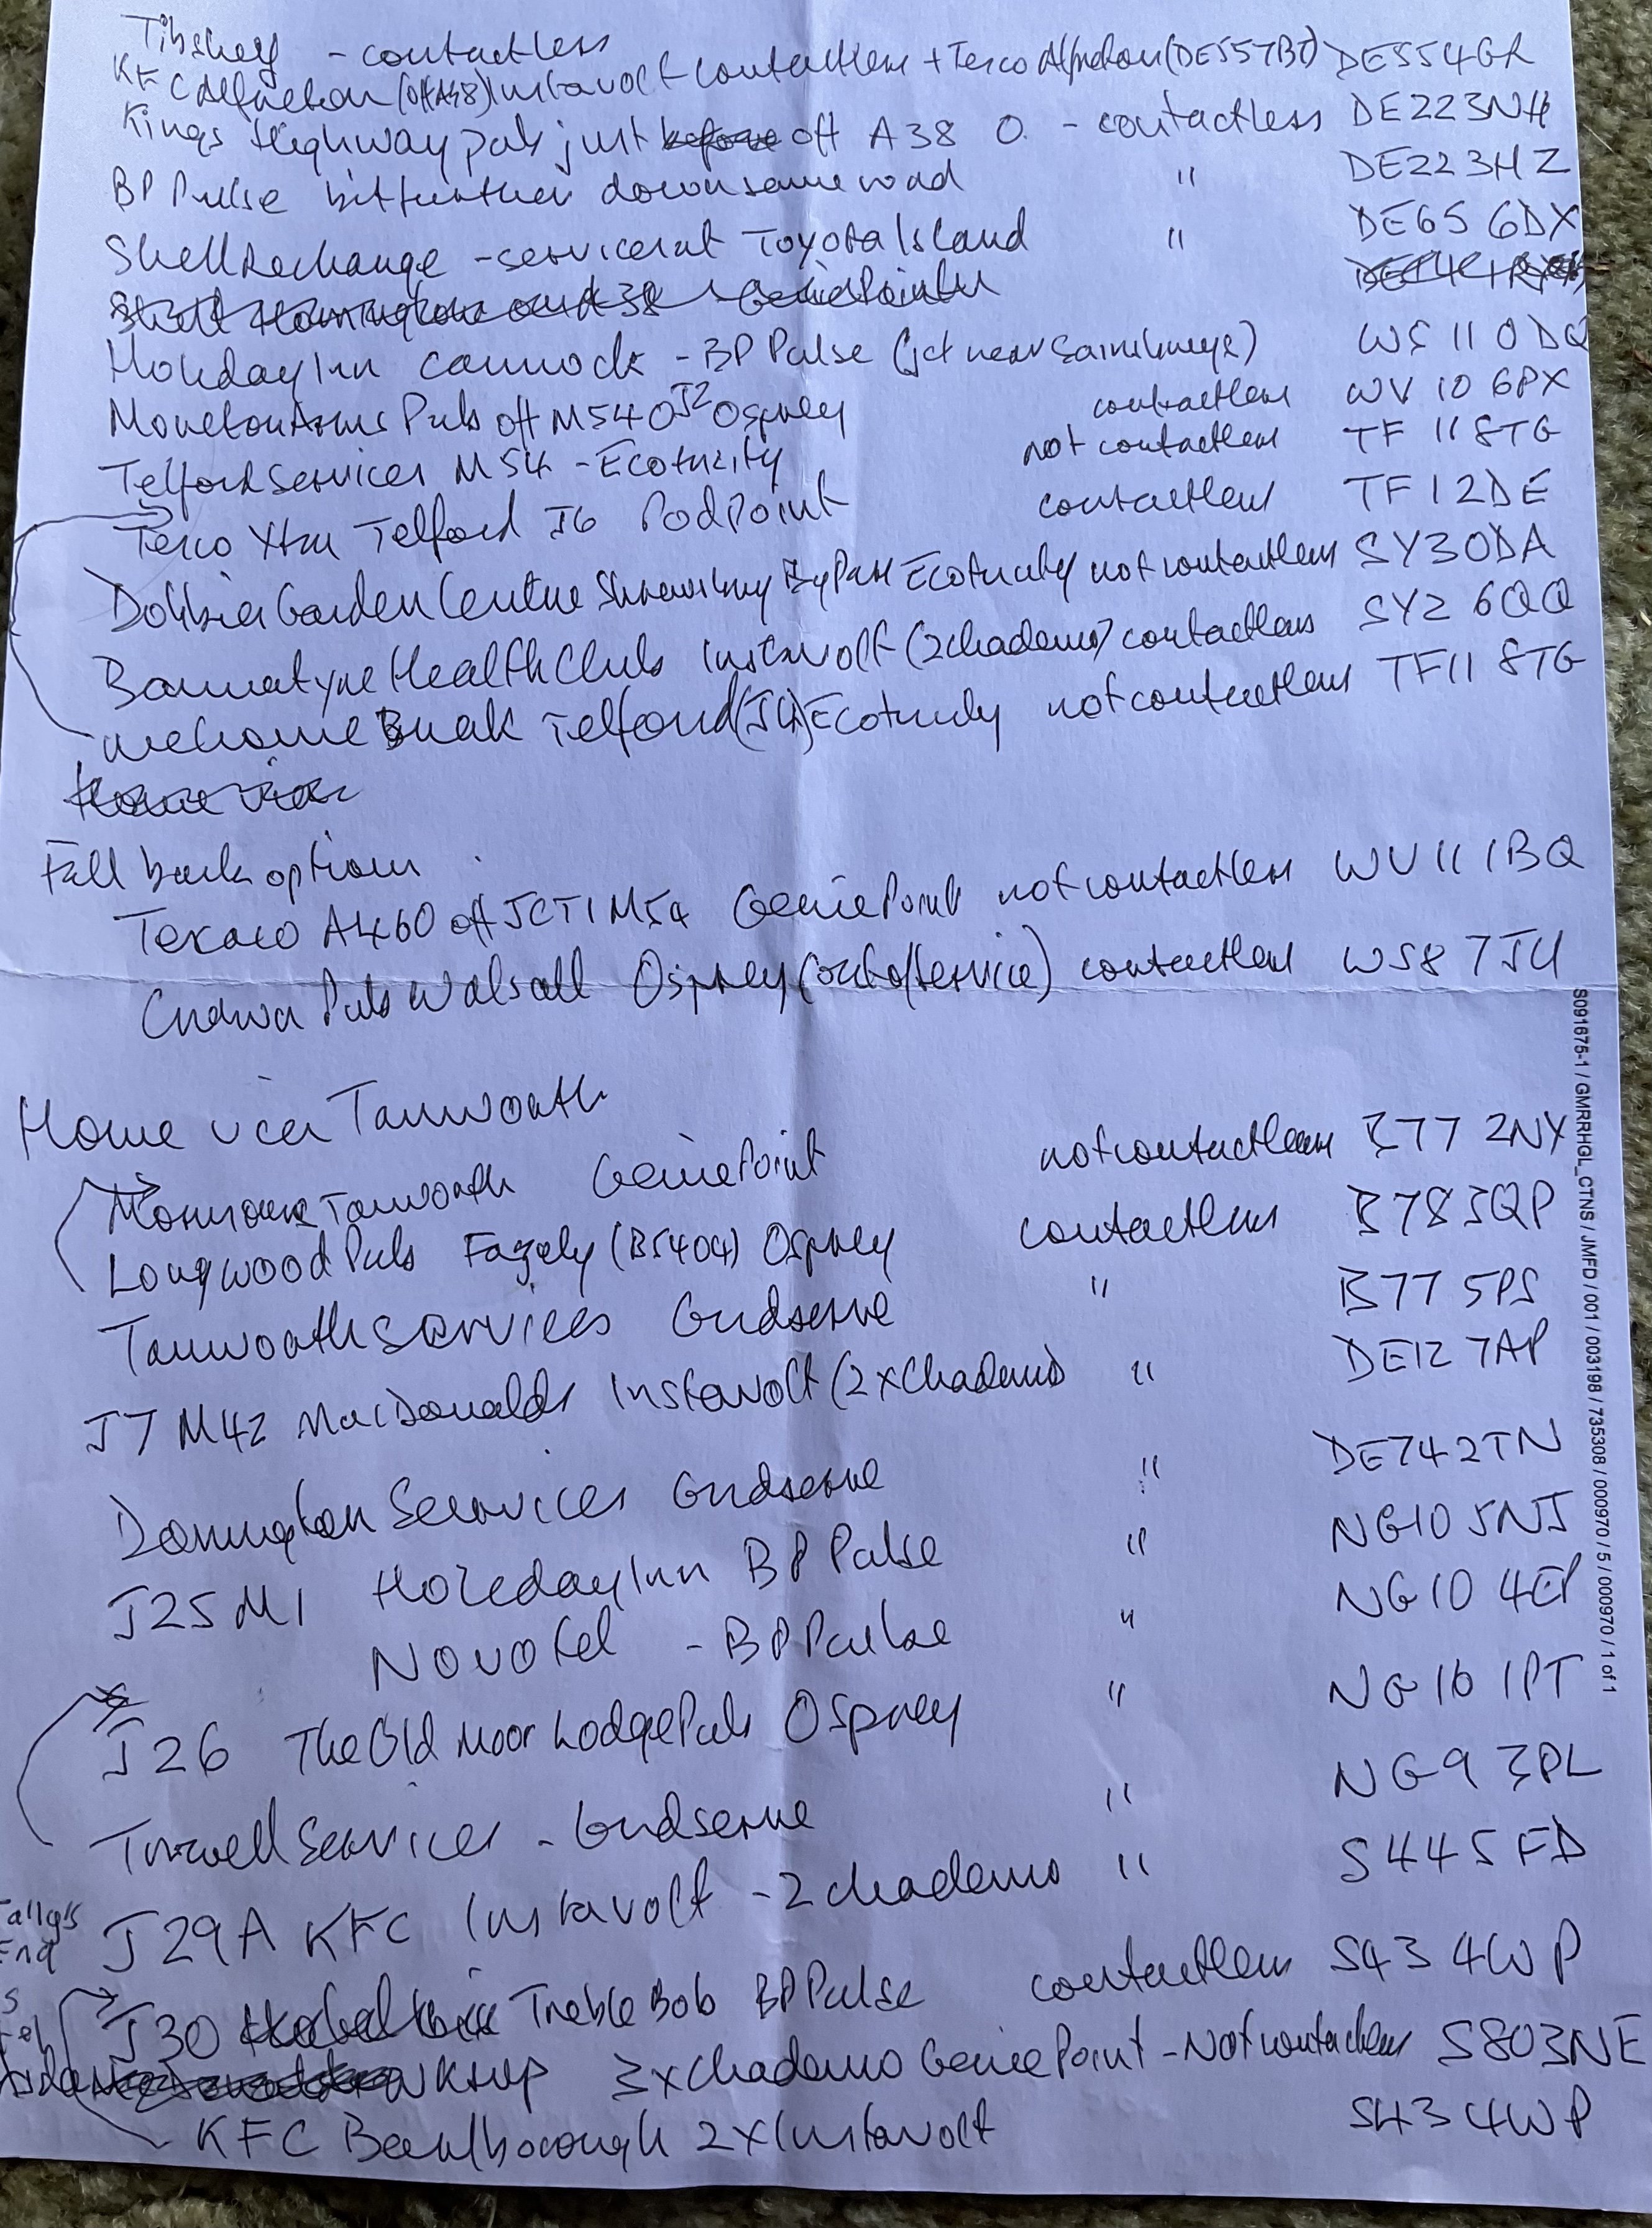 Tibshelf - contactless
KFC Alfreton (Off A38) Instavolt - contactless + Tesco Alfreton (DE55 7BT) DE55 4GR
Kings Highway pub just before off A38 O. - contactless DE22 3NH
BP Pulse bit further down same road " DE22 3HZ
Shell Recharge - services at Toyota Island " DE65 6DX
Holiday Inn Cannock - BP Pulse (jct near Sainsburys) WS11 0DQ
Moneton Arms Pub off M54 J2 Osprey contactless WV10 6PX
Telford Services M54 - Ecotricity not contactless TF11 8TG
Tesco Xtra Telford J6 PodPoint contactless TF1 2DE
Dobbies Garden Centre Shrewsbury ByPass Ecotricity not contactless SY3 0DA
Bannatyne Health Club Instavolt (2 chademo) contactless SY2 6QQ
Welcome Break Telford (J4) Ecotricity not contactless TF11 8TG
Home via
Fall back options
Texaco A460 off JCT1 M54 GeniePoint not contactless WV11 1BQ
Pub Walsall Osprey (out of service) contactless WS8 7JU
Home via Tamworth
Tamworth GeniePoint not contactless B77 2NY
Longwood Pub Fazely (B5404) Osprey contactless B78 3QP
Tamworth Services Gridserve " B77 5PS
J7 M42 MacDonalds Instavolt (2 x Chademo) " DE12 7AP
Donnington Services Gridserve " DE74 2TN
J25 M1 Holiday Inn BP Pulse " NG10 5NJ
Novotel - BP Pulse " NG10 4EP
J26 The Old Moor Lodge Pub Osprey " NG16 1PT
Trowell Services - Gridserve " NG9 3PL
J29A KFC Instavolt - 2 chademo " S44 5FD
End
J30 Treble Bob BP Pulse contactless S43 4WP
Wksop 3 x Chademo GeniePoint - Not contactless S80 3NE
KFC Bearlborough 2 x Instavolt S43 4WP
S091675-1 / GMRRHGL_CTNS / JMFD / 001 / 003198 / 735308 / 000970 / 5 / 000970 / 1 of 1